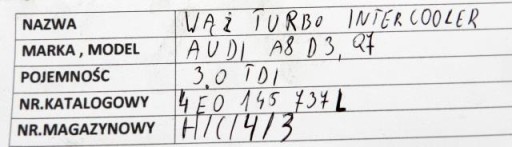 NAZWA WĄŻ TURBO INTERCOOLER
MARKA , MODEL AUDI A8 D3, Q7
POJEMNOŚC 3.0 TDI
NR.KATALOGOWY 4E0 145 737L
NR.MAGAZYNOWY H/C/4/3